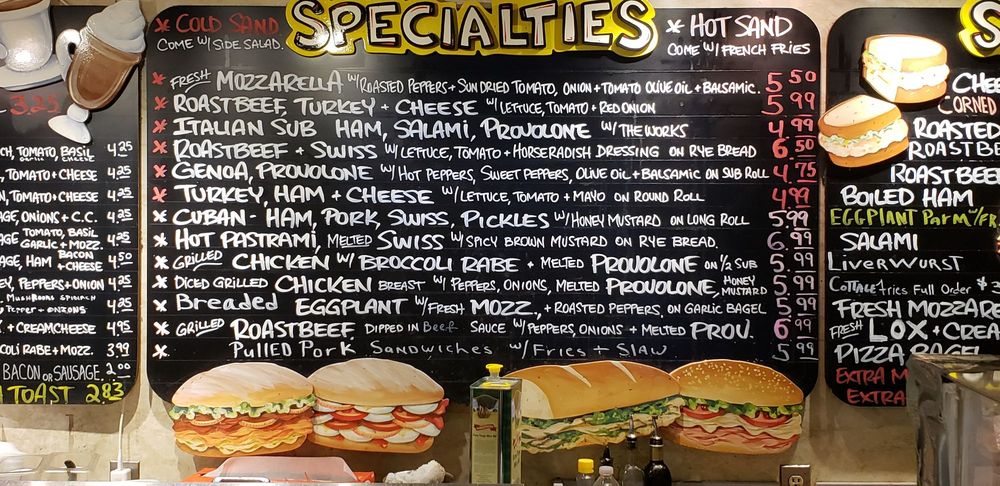 SPECIALTIES
* COLD SAND
COME W/ SIDE SALAD.
* HOT SAND
COME W/ FRENCH FRIES
* FRESH MOZZARELLA W/ ROASTED PEPPERS + SUN DRIED TOMATO, ONION + TOMATO OLIVE OIL + BALSAMIC. 5 50
* ROASTBEEF, TURKEY + CHEESE W/ LETTUCE, TOMATO + RED ONION 5 99
* ITALIAN SUB HAM, SALAMI, PROVOLONE W/ THE WORKS 4 99
* ROASTBEEF + SWISS W/ LETTUCE, TOMATO + HORSERADISH DRESSING ON RYE BREAD 6 50
* GENOA, PROVOLONE W/ HOT PEPPERS, SWEET PEPPERS, OLIVE OIL + BALSAMIC ON SUB ROLL 4.75
* TURKEY, HAM + CHEESE W/ LETTUCE, TOMATO + MAYO ON ROUND ROLL 4.99
* CUBAN - HAM, PORK, SWISS, PICKLES W/ HONEY MUSTARD ON LONG ROLL 5.99
* HOT PASTRAMI, MELTED SWISS W/ SPICY BROWN MUSTARD ON RYE BREAD. 6.99
* GRILLED CHICKEN W/ BROCCOLI RABE + MELTED PROVOLONE ON 1/2 SUB 5.99
* DICED GRILLED CHICKEN BREAST W/ PEPPERS, ONIONS, MELTED PROVOLONE, HONEY MUSTARD 5.99
* Breaded EGGPLANT W/ FRESH MOZZ., + ROASTED PEPPERS, ON GARLIC BAGEL 5 99
* GRILLED ROASTBEEF DIPPED IN Beef SAUCE W/ PEPPERS, ONIONS + MELTED PROV. 6 99
* PULLED PORK SANDWICHES W/ FRIES + SLAW 5 99
3.25
CH, TOMATO, BASIL 4.25
, TOMATO + CHEESE 4.25
N, TOMATO + CHEESE 4.25
AGE, ONIONS + C.C. 4.25
AGE TOMATO, BASIL GARLIC + MOZZ. 4.25
AGE, HAM BACON + CHEESE 4.50
EY, PEPPERS + ONION 4.25
4.25
+ CREAMCHEESE 4.95
COLI RABE + MOZZ. 3.99
BACON OR SAUSAGE. 2.00
TOAST 2.83
S
CHE
CORNED
ROASTED
ROASTBE
ROASTBEEF
BOILED HAM
EGGPLANT Parm W/ FR
SALAMI
LiverWurst
COTTAGE Fries Full Order $3
FRESH MOZZARE
FRESH LOX + CREA
PIZZA BAGEL
EXTRA M
EXTRA